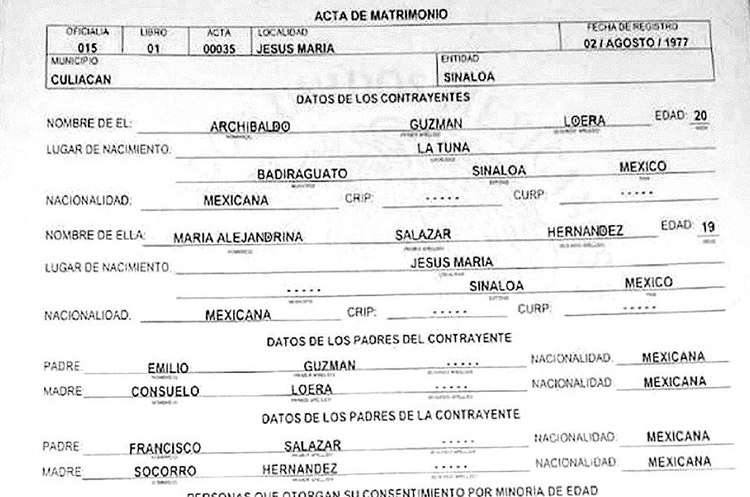 ACTA DE MATRIMONIO
OFICIALIA LIBRO ACTA LOCALIDAD FECHA DE REGISTRO
015 01 00035 JESUS MARIA 02 / AGOSTO / 1977
MUNICIPIO ENTIDAD
CULIACAN SINALOA
DATOS DE LOS CONTRAYENTES
NOMBRE DE EL: ARCHIBALDO GUZMAN LOERA EDAD: 20
LUGAR DE NACIMIENTO: LA TUNA
BADIRAGUATO SINALOA MEXICO
NACIONALIDAD: MEXICANA CRIP: ----- CURP: -----
NOMBRE DE ELLA: MARIA ALEJANDRINA SALAZAR HERNANDEZ EDAD: 19
LUGAR DE NACIMIENTO: JESUS MARIA
----- SINALOA MEXICO
NACIONALIDAD: MEXICANA CRIP: ----- CURP: -----
DATOS DE LOS PADRES DEL CONTRAYENTE
PADRE EMILIO GUZMAN ----- NACIONALIDAD: MEXICANA
MADRE CONSUELO LOERA ----- NACIONALIDAD: MEXICANA
DATOS DE LOS PADRES DE LA CONTRAYENTE
PADRE: FRANCISCO SALAZAR ----- NACIONALIDAD: MEXICANA
MADRE: SOCORRO HERNANDEZ ----- NACIONALIDAD: MEXICANA
PERSONAS QUE OTORGAN SU CONSENTIMIENTO POR MINORIA DE EDAD